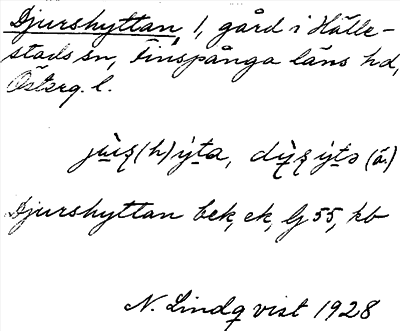 Djurshyttan, 1, gård i Hälle-
stads sn, Finspånga läns hd,
Österg. l.
Djurshyttan bek, ek, lj 55, kb
N. Lindqvist 1928